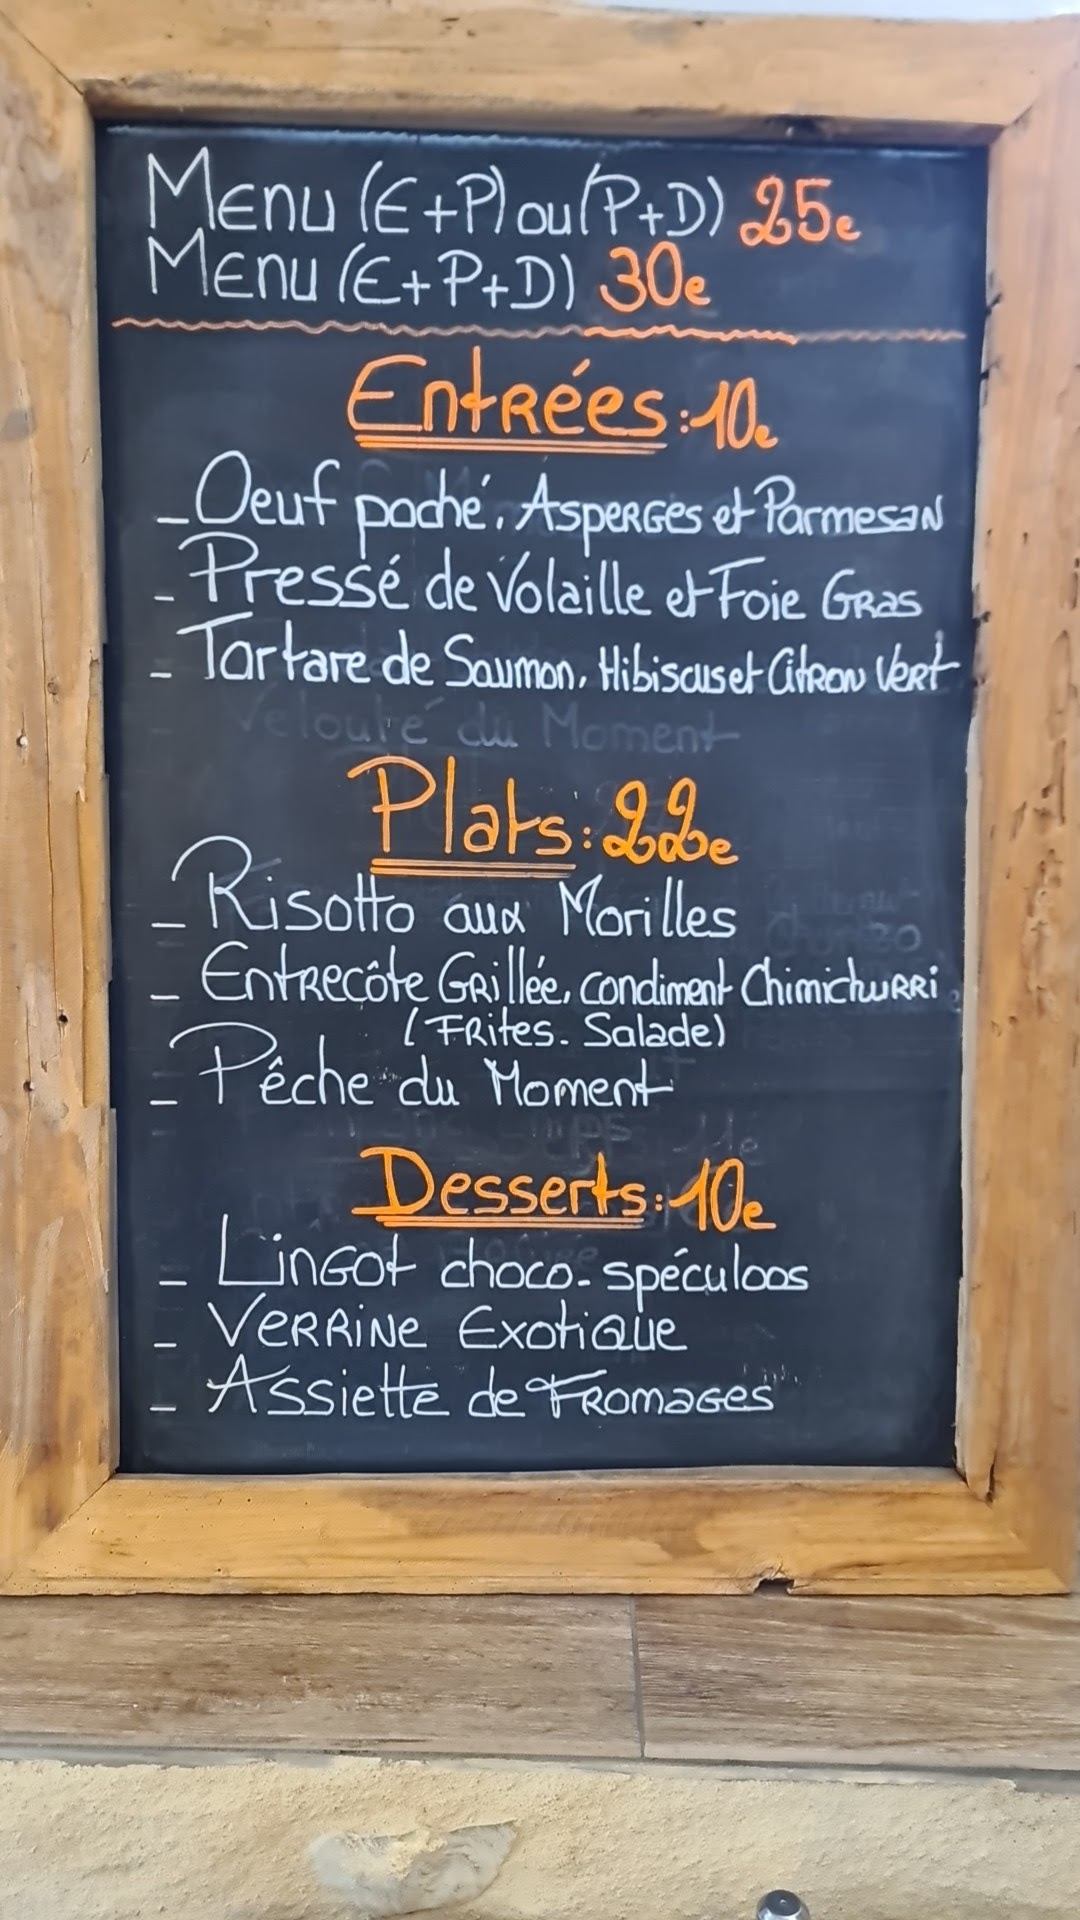 Menu (E+P) ou (P+D) 25e
Menu (E+P+D) 30e
Entrées: 10e
- Oeuf poché, Asperges et Parmesan
- Pressé de Volaille et Foie Gras
- Tartare de Saumon, Hibiscus et Citron Vert
Velouté du Moment
Plats: 22e
- Risotto aux Morilles
- Entrecôte Grillée, condiment Chimichurri
(Frites - Salade)
- Pêche du Moment
Desserts: 10e
- Lingot choco - spéculoos
- Verrine Exotique
- Assiette de Fromages